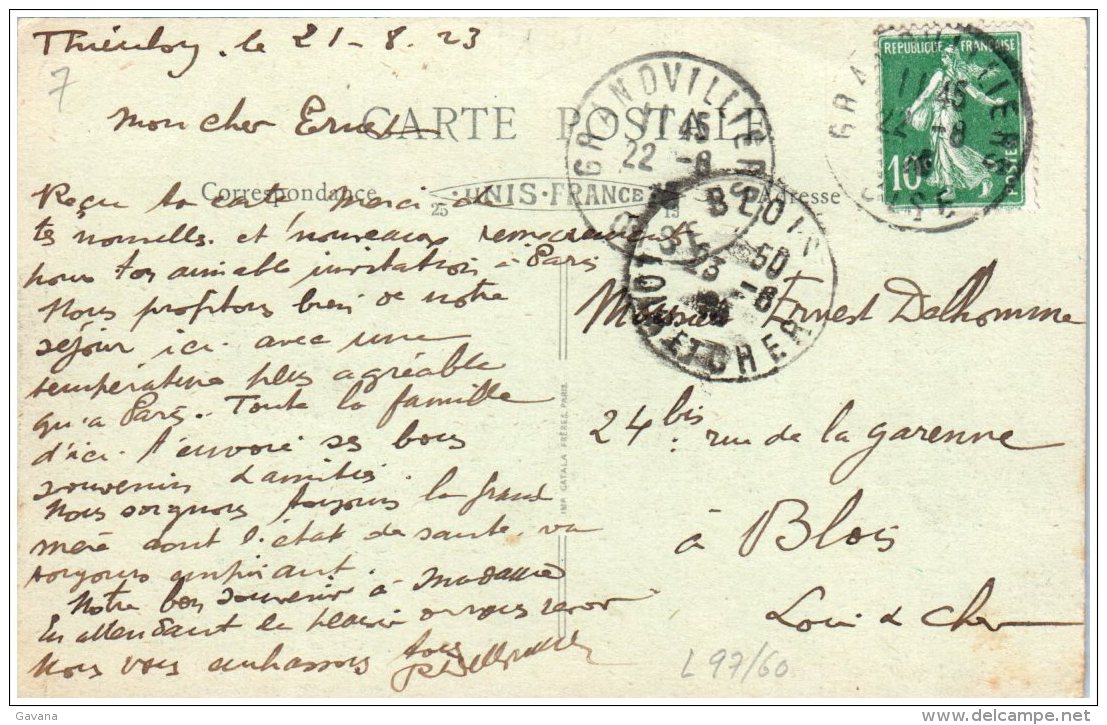 le 21-8.23
7
Mon cher Ernest
CARTE POSTALE
Correspondance
Adresse
25 UNIS-FRANCE 19
GRANDVILLIERS
11 45
22 -8
OISE
GRANDVILLIERS
11 45
22 -8
OISE
REPUBLIQUE FRANÇAISE
10
POSTES
BLOIS
50
23 -8
LOIR ET CHER
Reçu ta carte Merci de
tes nouvelles et nouveaux
nous ton aimable invitation à Paris
Nous profitons bien de notre
séjour ici avec une
température plus agréable
qu'a Paris. Toute la famille
d'ici t'envoie ses bons
souvenirs d'amitiés.
Nous soignons toujours la grand
mère dont l'état de santé va
toujours empirant.
Notre bon souvenir à Madame
En attendant le plaisir de vous revoir
Nous vous embrassons tous
Monsieur Ernest Delhomme
24 bis rue de la garenne
à Blois
Loir & Cher
IMP. CATALA FRÈRES, PARIS
L 97/60
Gavana
www.delcampe.net